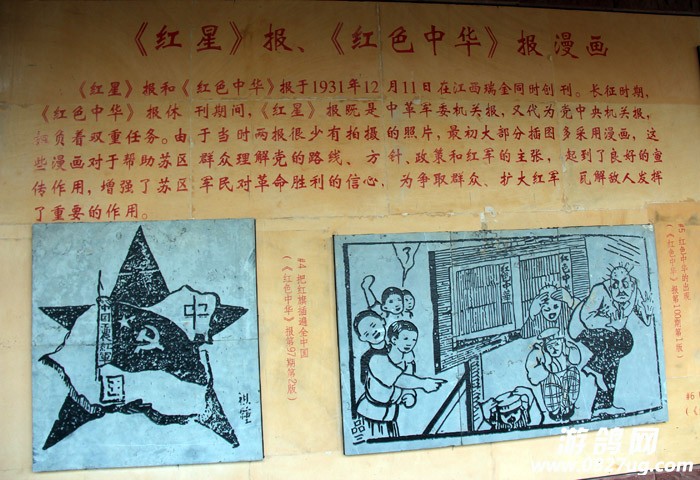 《红星》报、《红色中华》报漫画
《红星》报和《红色中华》报于1931年12月11日在江西瑞金同时创刊。长征时期，
《红色中华》报休刊期间，《红星》报既是中革军委机关报，又代为党中央机关报，
担负着双重任务。由于当时两报很少有拍摄的照片，最初大部分插图多采用漫画，这
些漫画对于帮助苏区群众理解党的路线、方针、政策和红军的主张，起到了良好的宣
传作用，增强了苏区军民对革命胜利的信心，为争取群众、扩大红军 瓦解敌人发挥
了重要的作用。
中
祖
#4 把红旗插遍全中国
（《红色中华》报第97期第2版）
红色中华
红色中华
品三
#5 红色中华的出版
（《红色中华》报第100期第1版）
#6
（《
游鸽网
www.0827ug.com